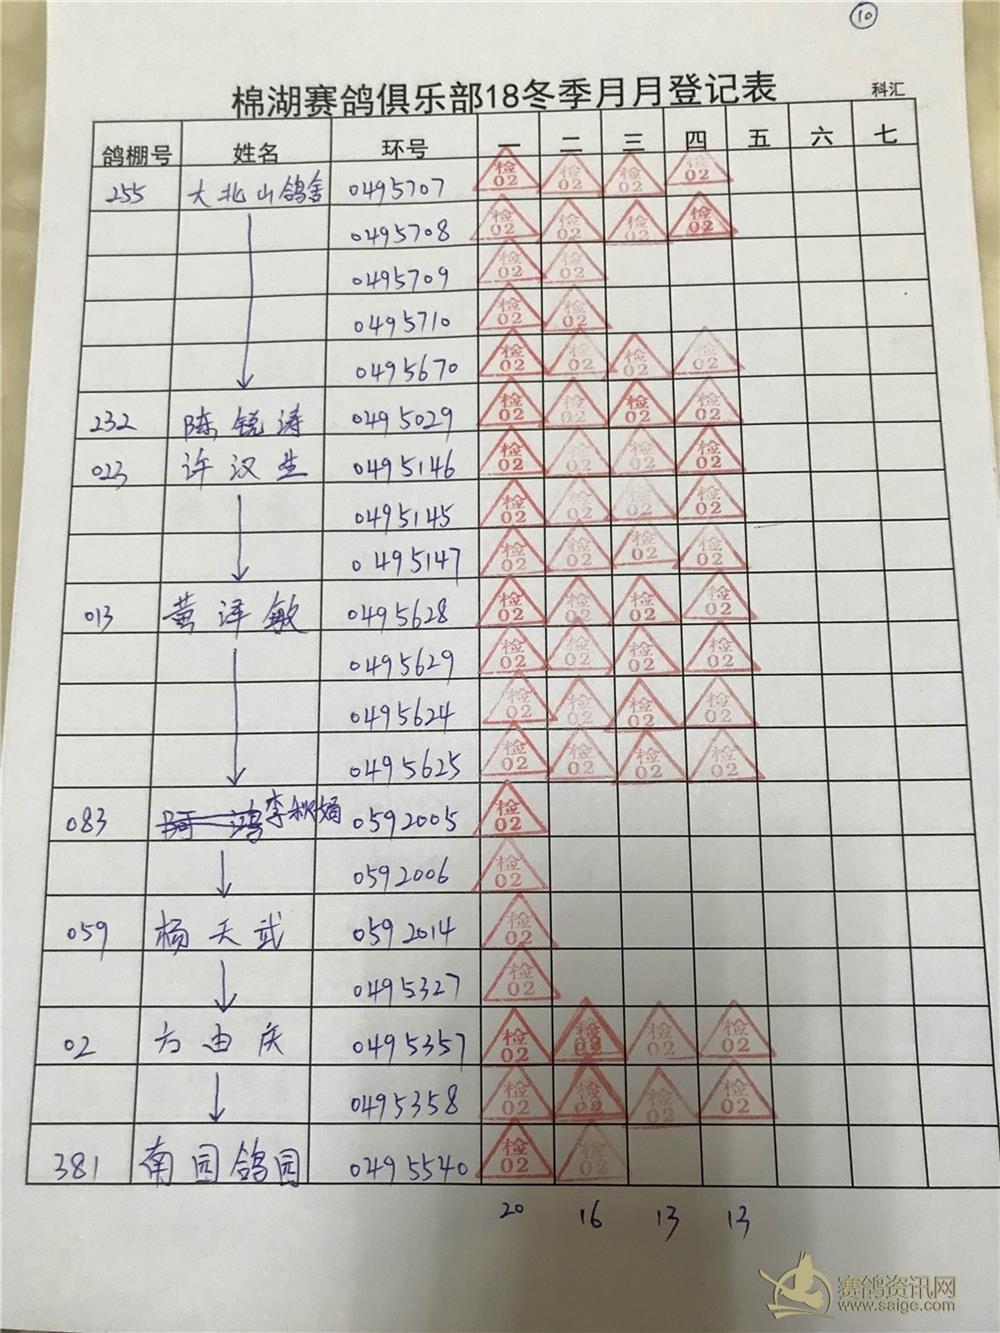 10
棉湖赛鸽俱乐部18冬季月月登记表
科汇
鸽棚号 姓名 环号 一 二 三 四 五 六 七
255 大北山鸽舍 0495707 检02 检02 检02 检02
0495708 检02 检02 检02 检02
0495709 检02 检02
0495710 检02 检02
0495670 检02 检02 检02 检02
232 陈锐涛 0495029 检02 检02 检02 检02
023 许汉生 0495146 检02 检02 检02 检02
0495145 检02 检02 检02 检02
0495147 检02 检02 检02 检02
013 黄泽敏 0495628 检02 检02 检02 检02
0495629 检02 检02 检02 检02
0495624 检02 检02 检02 检02
0495625 检02 检02 检02 检02
083 李秋 0592005 检02
0592006 检02
059 杨天武 0592014 检02
0495327 检02
02 方由庆 0495357 检02 检02 检02 检02
0495358 检02 检02 检02 检02
381 南园鸽园 0495540 检02 检02
20 16 13 13
赛鸽资讯网
www.saige.com